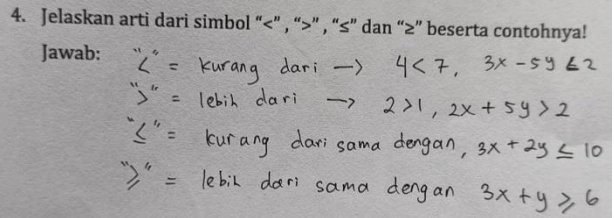 4. Jelaskan arti dari simbol “<” , “>” , “≤” dan “≥” beserta contohnya!
Jawab: "<" = kurang dari → 4 < 7, 3x - 5y ≤ 2
">" = lebih dari → 2 > 1, 2x + 5y > 2
"≤" = kurang dari sama dengan, 3x + 2y ≤ 10
"≥" = lebih dari sama dengan 3x + y ≥ 6